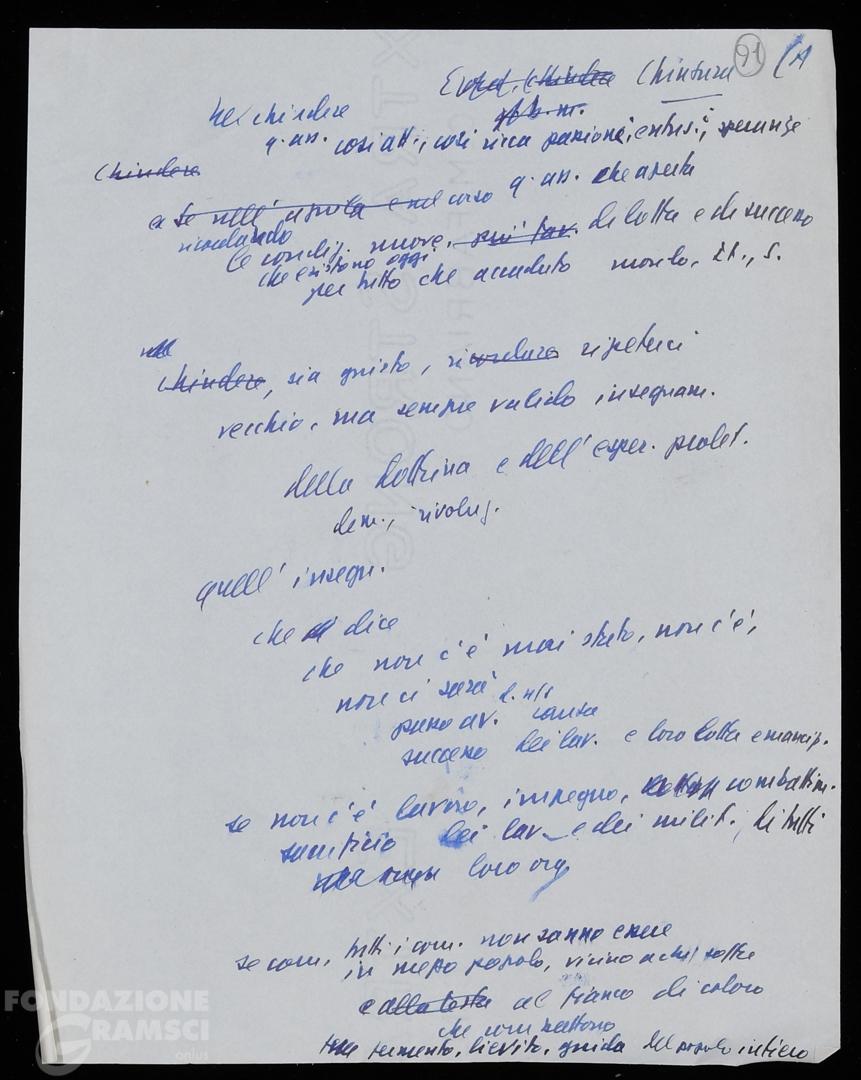 Chiusura 91
nel chiudere
q. ann. così att., così ricca passione, entus., speranze
Chiudere
e se nell' e nel corso q. ann. che aperta
ricordando
le condiz. nuove, di lotta e di successo
che esistono oggi
per tutto che accaduto mondo, It., S.
Chiudere, sia giusto, ricordare ripeterci
vecchio, ma sempre valido insegnam.
della dottrina e dell' esper. prolet.
dem., rivoluz.
quell' insegn.
che dice
che non c'è mai stato, non c'è,
non ci sarà
passo av. causa
successo dei lav. e loro lotta emancip.
se non c'è lavoro, impegno, combattim.
sacrificio dei lav. e dei milit., di tutti
loro org
se com. tutti i com. non sanno essere
in mezzo popolo, vicino a chi soffre
e alla testa al fianco di coloro
che combattono
fermento, lievito, guida del popolo intiero
FONDAZIONE
GRAMSCI
onlus